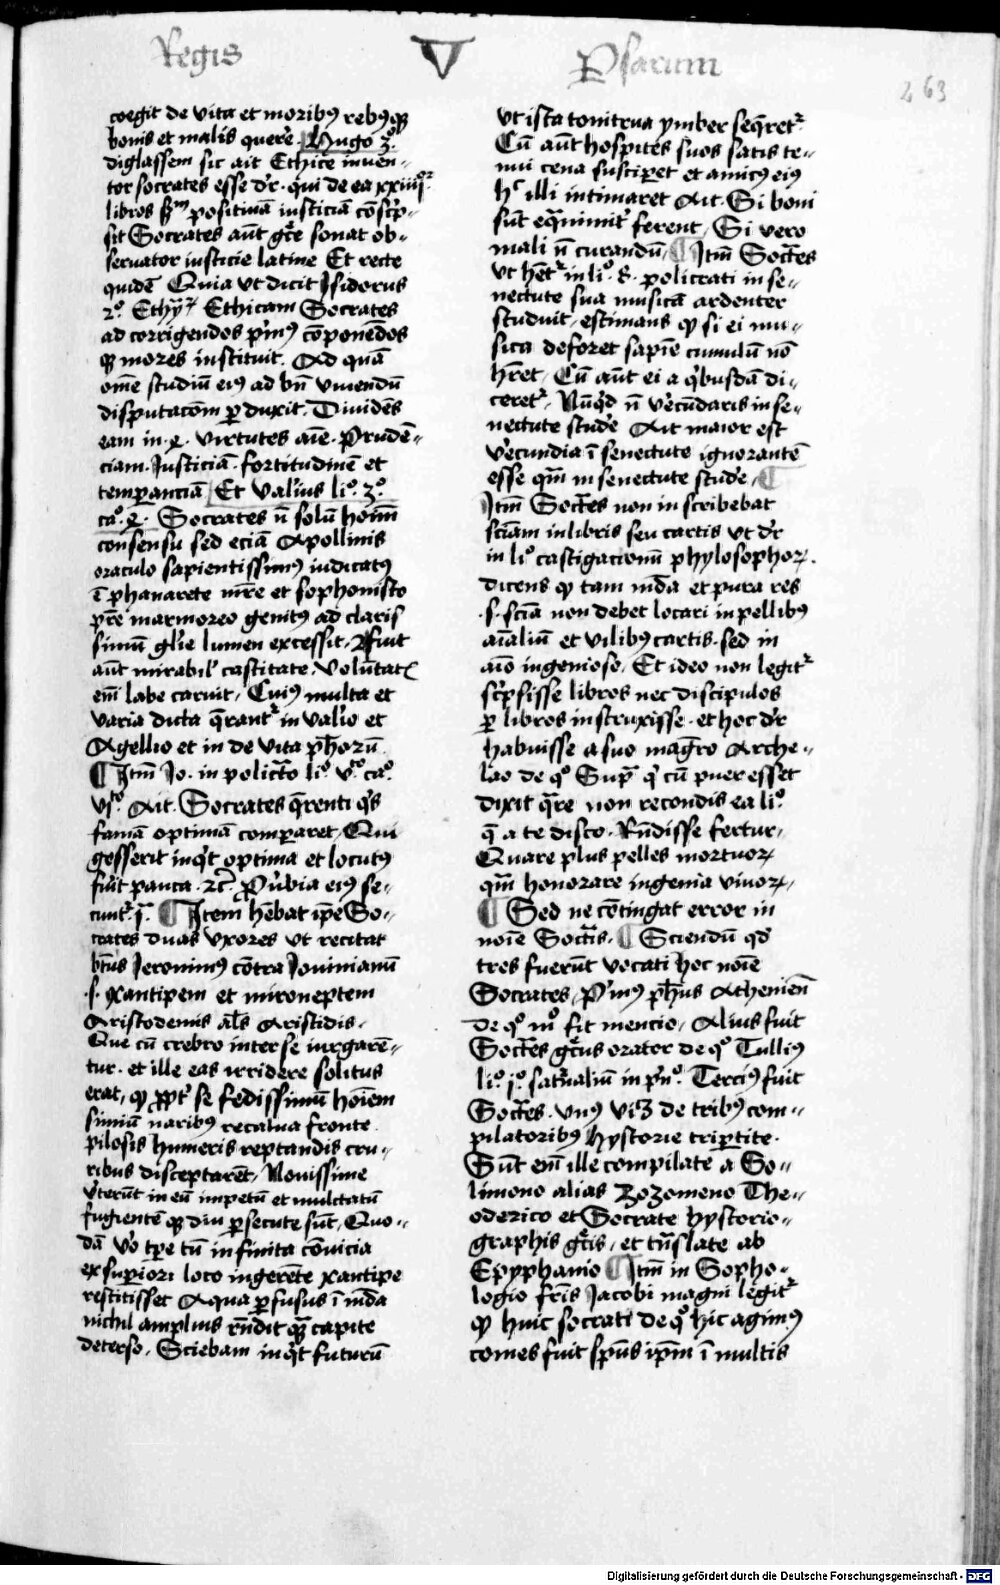 Regis V Psarum
263
coegit de vita et moribꝰ rebꝰqꝫ
bonis et malis querẽ. Hugo 3º.
diglassem sic ait Ethice inuen-
tor socrates esse dr̃. qui de ea xxiiij
libros positiuã iusticiã cõsc̃p-
sit Socrates aũt gr̃ce sonat ob-
seruator iusticie latine Et recte
quidẽ Quia vt dicit Jsidorus
2º. Ethyꝝ Ethicam Socrates
ad corrigendos pͥmꝰ cõponẽdos
qꝫ mores instituit. Ad quã
om̃e studiũ eiꝰ ad bñ viuendũ
disputacõm ꝑduxit. Diuidẽs
eam in .4. virtutes aĩe. Prudẽ-
ciam. Justiciã. fortitudinẽ et
temperanciã Et Valiꝰus liº. 3º.
caº. 4. Socrates ñ solũ hom̃
consensu sed eciã Apollinis
oraculo sapientissimꝰ iudicatꝰ
ĩ phanarete mr̃e et sophonisto
pr̃e marmoreo genitꝰ ad claris
simũ glĩe lumen excessit. Fuit
aũt mirabilʼ castitate. Volũtatẽ
em̃ labe caruit. Cuiꝰ multa et
varia dicta q̃rantᷣ in Valʼio et
Agellio et in de vita ph̃orũ
¶ Jtm̃ Jo. in policrͣto liº. vᵗº caº.
vjᵗº. Ait. Socrates q̃renti qͥs
famã optimã comparet. Qui
gesserit inqͥt optima et locutꝰ
fuʼit pauca. ⁊c̃. Prͦũbia eiꝰ se-
cuntᷣ. jͣ. ¶ Jtem hẽbat ip̃e So-
crates duas vxores vt recitat
btũs Jeronimꝰ cõtra Jouinianũ
.s. xantipem et mironeptem
Aristodemis al̃s Aristidis.
Que cũ crebro inter se iurgarẽ-
tur. et ille eas irridere solitus
erat, qꝫ ꝓpt̃ se fedissimũ hoĩem
simiũ naribꝰ recalua fronte
pilosis humeris reptandis cru-
ribus disceptarẽt. Nouissime
vʼterũt in eũ impetũ et mulctatũ
fugientẽ qꝫ diu ꝑsecute sũt. Quo-
dã vʼo tp̃e cũ infinita cõuicia
ex supiori loco ingerẽte xantipe
restitisset Aqua ꝑfusus ĩm̃da
nichil amplius rñdit qͣꝫ capite
deterso. Sciebam inqͥt futurũ
vt ista tonitrua ymber seq̃retᷣ.
Cũ aũt hospites suos satis te-
nui cena susciperet et amicꝰ eiꝰ
hͨ illi intimaret Ait. Si boni
sũt equnimitʼ ferent. Si vero
mali ñ curandũ. ¶ Jtm̃ Socͣtes
vt hẽtᷣ in liº. 8. policrati in se-
nectute sua musicã ardenter
studuit. estimans qꝫ si ei mu-
sica deforet sapiẽ cumulũ nõ
hr̃et. Cũ aũt ei a qͥbusdã di-
ceretᷣ. Nũqͥd ñ vʼecũdaris in se-
nectute studʼe Ait maior est
vʼecundia ĩ senectute ignorantẽ
esse qͣm in senectute studʼe. ¶
Jtm̃ Socͣtes non inscribebat
sciam in libris seu cartis vt dr̃
in liº castigacionũ phylosophoꝝ.
dicens qꝫ tam mũda et pura res
.s. sciã non debet locari in pellibꝰ
aĩaliũ et vilibꝰ cartis. sed in
aĩo ingenioso. Et ideo non legitᷣ
scͥpsisse libros nec discipulos
ꝑ libros instruxisse. et hoc dr̃
habuisse a suo mag̃ro Arche-
lao de qº supͣ qͥ cũ puer esset
dixit qͣre non recondis ea liº.
q̃ a te disco. Rñdisse fertur.
Quare plus pelles mortuoꝝ
qͣm honorare ingenia viuoꝝ.
¶ Sed ne cõtingat error in
noĩe Socͣtis. ¶ Sciendũ qꝫ
tres fuerũt vocati hoc noĩe
Socrates. Pͥmꝰ ph̃us Atheniẽn
de qº mº fit mencio. Alius fuit
Socͣtes gͣcus orator de qº Tulliꝰ
liº. jº. satʼnaliũ in pͥnº. Tercius fuit
Socͣtes. vnꝰ viꝫ de tribꝰ com-
pilatoribꝰ hystorie tripertite.
Sũt em̃ ille compilate a So-
limono alias zozomeno The-
oderico et Socrate hystorio-
graphis gͣcis. et tñslate ab
Epyphanio ¶ Jtm̃ in Sopho-
logio fr̃is Jacobi magni legitᷣ
qꝫ huic socrati de qº hic agimꝰ
comes fuit sp̃us ip̃m ĩ multis
Digitalisierung gefördert durch die Deutsche Forschungsgemeinschaft - DFG